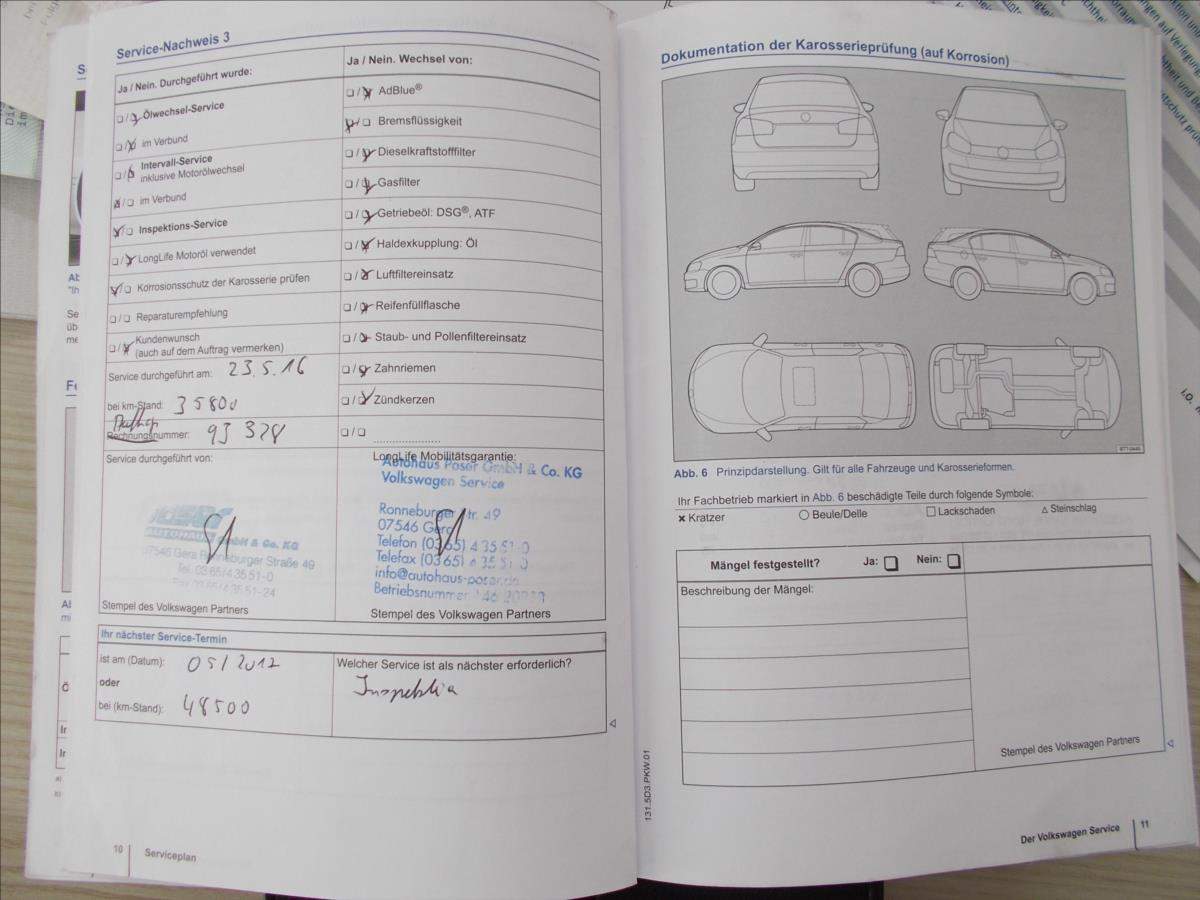 Service-Nachweis 3
Ja / Nein. Durchgeführt wurde:
Ölwechsel-Service
im Verbund
Intervall-Service
inklusive Motorölwechsel
im Verbund
Inspektions-Service
LongLife Motoröl verwendet
Korrosionsschutz der Karosserie prüfen
Reparaturempfehlung
Kundenwunsch
(auch auf dem Auftrag vermerken)
Service durchgeführt am: 23.5.16
bei km-Stand: 35800
Rechnungsnummer: 93 328
Service durchgeführt von:
AUTOHAUS GmbH & Co. KG
07546 Gera Ronneburger Straße 49
Tel. 0365/4 35 51-0
Fax 0365/4 35 51-24
Stempel des Volkswagen Partners
Ja / Nein. Wechsel von:
AdBlue®
Bremsflüssigkeit
Dieselkraftstofffilter
Gasfilter
Getriebeöl: DSG®, ATF
Haldexkupplung: Öl
Luftfiltereinsatz
Reifenfüllflasche
Staub- und Pollenfiltereinsatz
Zahnriemen
Zündkerzen
LongLife Mobilitätsgarantie:
Autohaus Poser GmbH & Co. KG
Volkswagen Service
Ronneburger Str. 49
07546 Gera
Telefon (0365) 4 35 51-0
Telefax (0365) 4 35 51-0
info@autohaus-poser.de
Betriebsnummer
Stempel des Volkswagen Partners
Ihr nächster Service-Termin
ist am (Datum): 05/2017
oder
bei (km-Stand): 48500
Welcher Service ist als nächster erforderlich?
Inspektion
10 Serviceplan
Dokumentation der Karosserieprüfung (auf Korrosion)
Abb. 6 Prinzipdarstellung. Gilt für alle Fahrzeuge und Karosserieformen.
Ihr Fachbetrieb markiert in Abb. 6 beschädigte Teile durch folgende Symbole:
× Kratzer ○ Beule/Delle □ Lackschaden △ Steinschlag
Mängel festgestellt? Ja: Nein:
Beschreibung der Mängel:
Stempel des Volkswagen Partners
131.5D3.PKW.01
Der Volkswagen Service 11